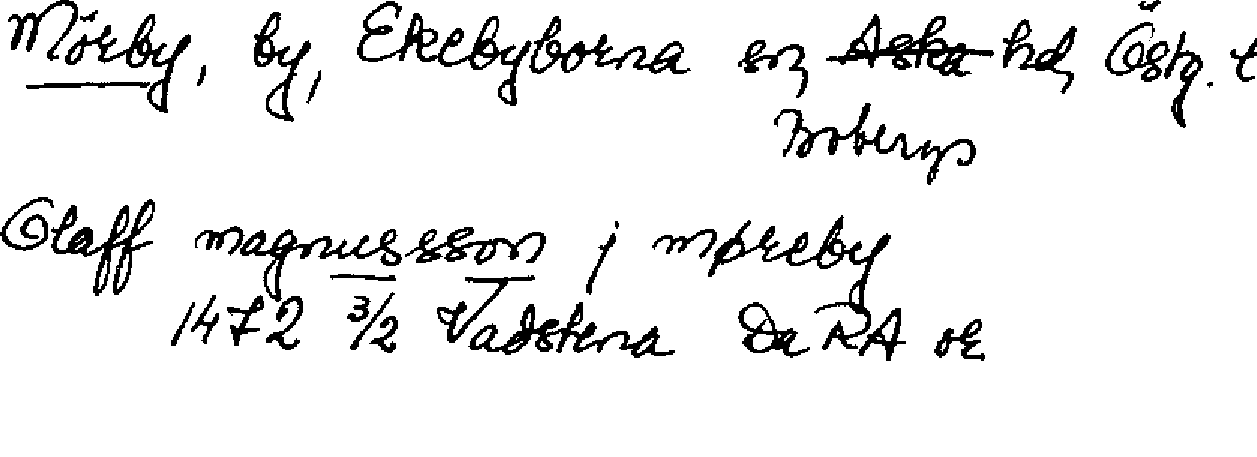 Mörby, by, Ekebyborna sn, Aska hd, Östg. t
Bobergs
Olaff magnussson j møreby
1472 3/2 Vadstena Da RA or